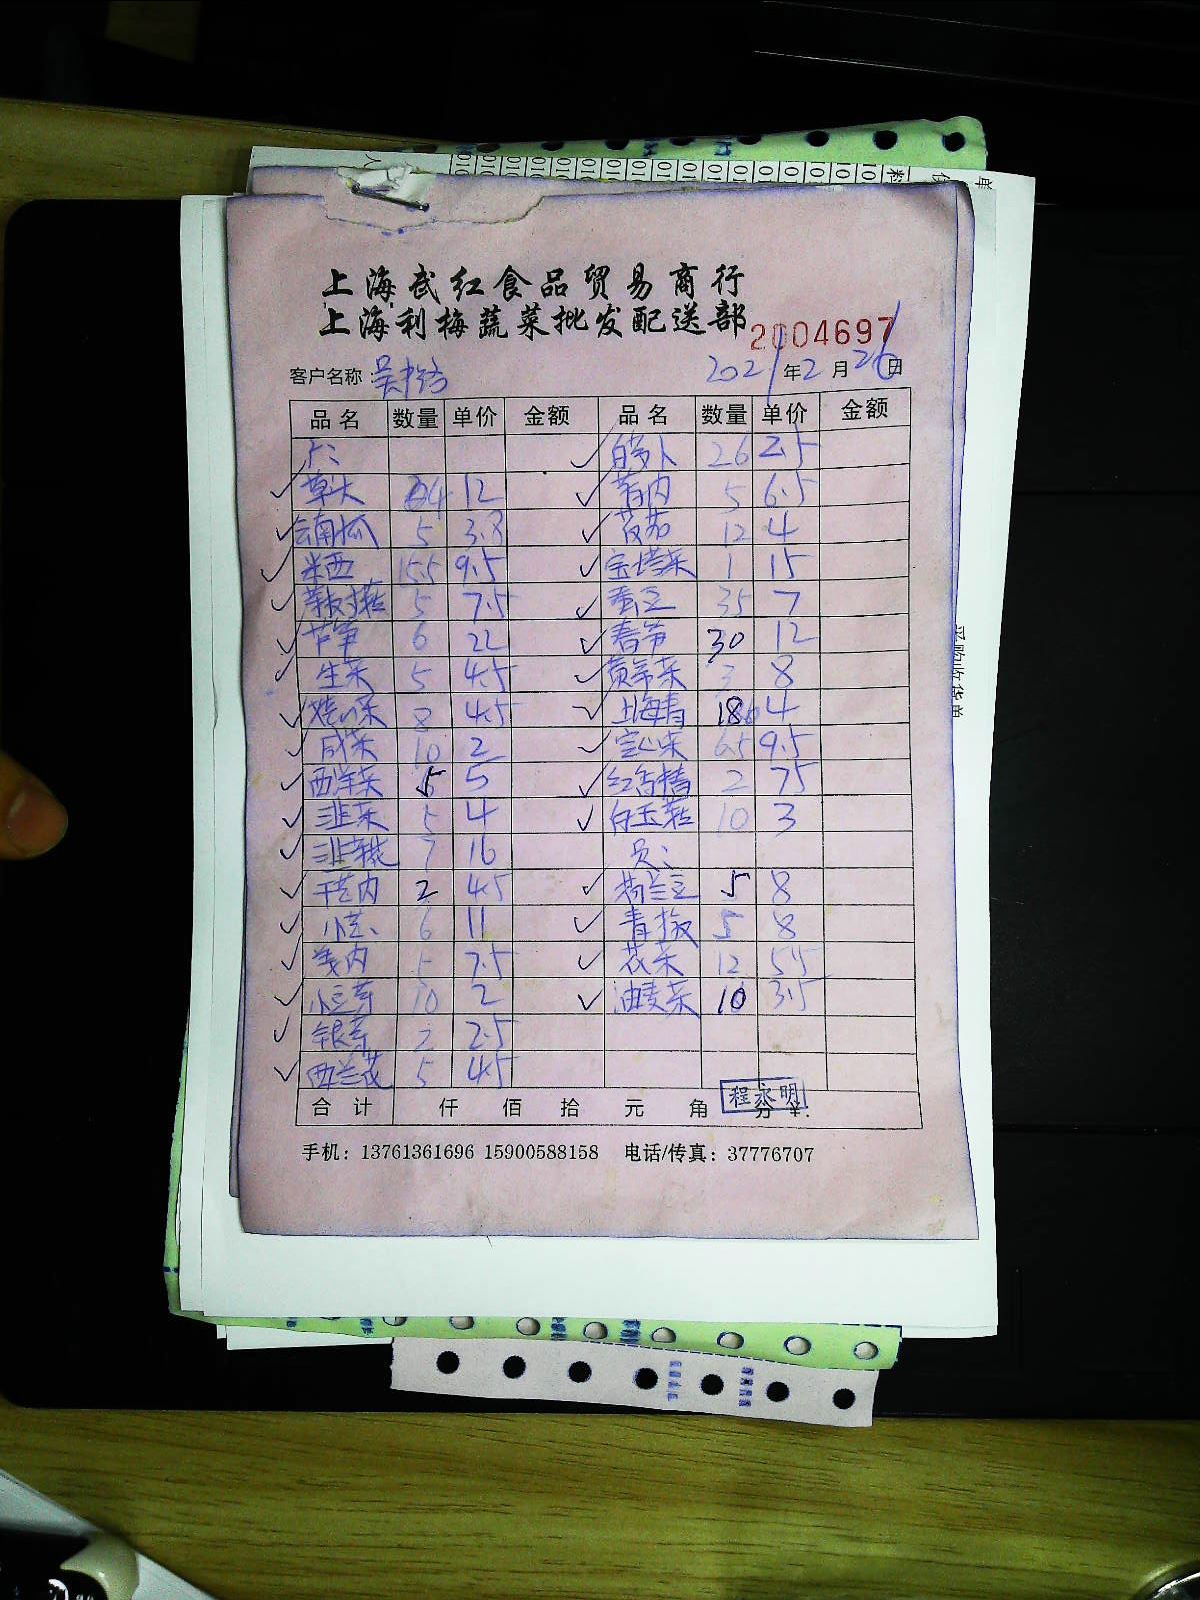 上海武红食品贸易商行
上海利梅蔬菜批发配送部
2004697
客户名称 2021年2月26日
品名 数量 单价 金额 品名 数量 单价 金额
白萝卜 26 2.5
草头 24 12 5 6.5
南瓜 5 3.8 12 4
米西 15.5 9.5 宝塔菜 1 15
5 7.5 蚕豆 35 7
芦笋 6 22 春笋 30 12
生菜 5 4.5 8
8 4.5 上海青 18 4
咸菜 10 2 空心菜 6.5 9.5
西洋菜 5 5 2 75
韭菜 5 4 白玉菇 10 3
7 16
2 4.5 荷兰豆 5 8
小芒 6 11 青椒 5 8
5 7.5 花菜 12 5.5
小豆芽 10 2 油麦菜 10 3.5
银芽 2 2.5
西兰花 5 4.5
合计 仟 佰 拾 元 角 分 ¥:
程永明
手机: 13761361696 15900588158 电话/传真: 37776707
采购收货单